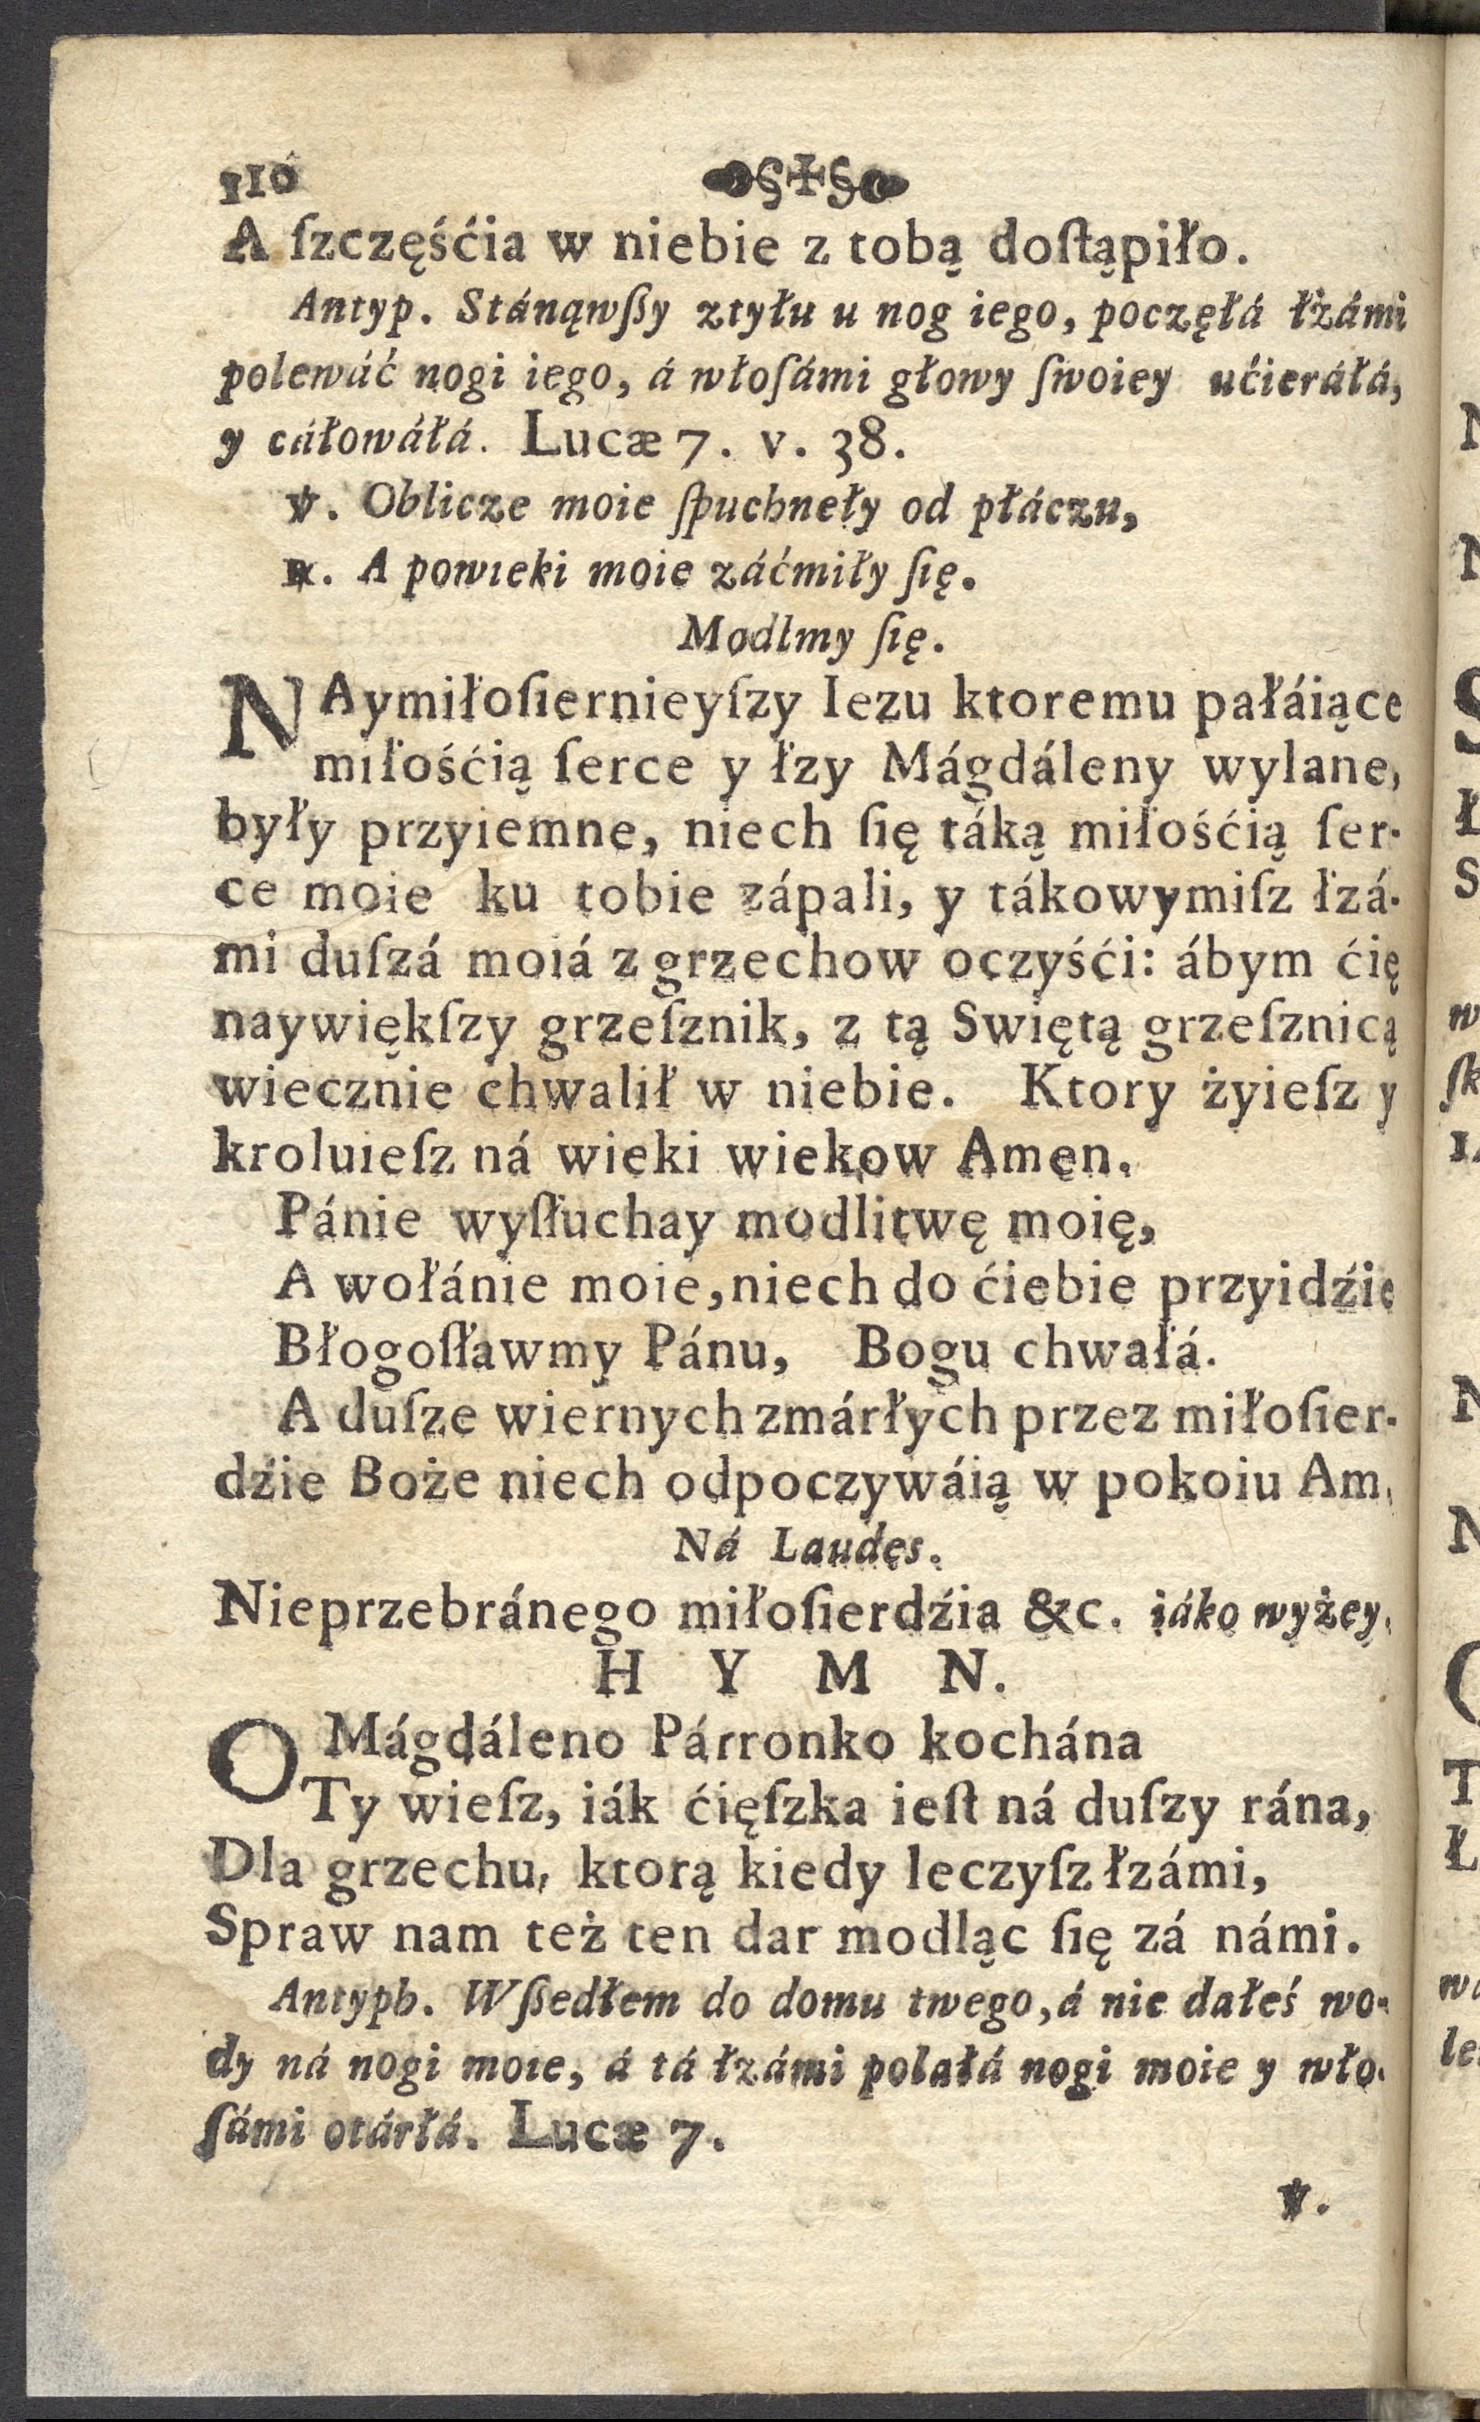 110
A ſzczęśćia w niebie z tobą doſtąpiło.
Antyp. Stánąwſßy ztyłu u nog iego, poczęłá łzámi
polewáć nogi iego, á włoſámi głowy ſwoiey ućieráłá,
y cáłowáłá. Lucæ 7. v. 38.
℣. Oblicze moie ſpuchneły od płáczu,
℟. A powieki moie záćmiły ſię.
Modlmy ſię.
NAymiłoſiernieyſzy Iezu ktoremu pałáiące
miłośćią ſerce y łzy Mágdáleny wylane,
były przyiemne, niech ſię táką miłośćią ſer-
ce moie ku tobie zápali, y tákowymiſz łzá-
mi duſzá moiá z grzechow oczyśći: ábym ćię
naywiękſzy grzeſznik, z tą Swiętą grzeſznicą
wiecznie chwalił w niebie. Ktory żyieſz y
kroluieſz ná wieki wiekow Amen.
Pánie wyſłuchay modlitwę moię,
A wołánie moie, niech do ćiebie przyidźie
Błogoſławmy Pánu, Bogu chwałá.
A duſze wiernych zmárłych przez miłoſier-
dźie Boże niech odpoczywáią w pokoiu Am.
Ná Laudes.
Nieprzebránego miłoſierdźia &c. iáko wyżey.
H Y M N.
O Mágdáleno Pátronko kochána
Ty wieſz, iák ćięſzka ieſt ná duſzy rána,
Dla grzechu, ktorą kiedy leczyſz łzámi,
Spraw nam też ten dar modląc ſię zá námi.
Antyph. Wſßedłem do domu twego, á nie dałeś wo-
dy ná nogi moie, á tá łzámi polałá nogi moie y wło-
ſámi otárłá. Lucæ 7.
℣.